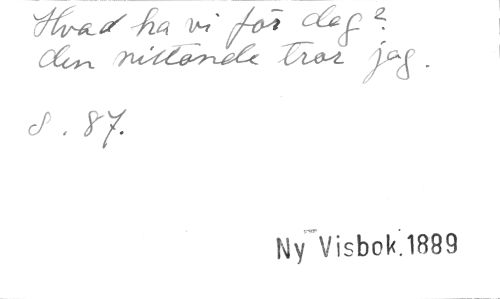 Hvad ha vi för dag?
den nittonde tror jag.
s. 87.
Ny Visbok. 1889